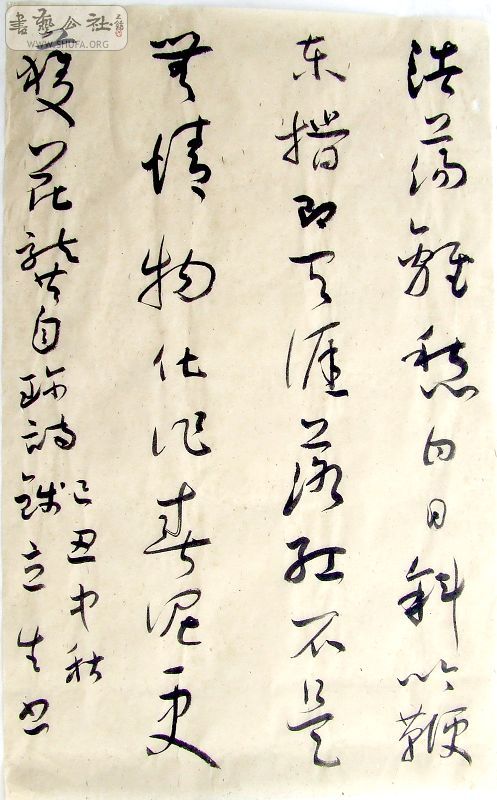 書藝公社
WWW.SHUFA.ORG
浩蕩離愁白日斜吟鞭
东指即天涯落红不是
無情物化作春泥更
護花龔自珍詩
己丑中秋
錢立生书